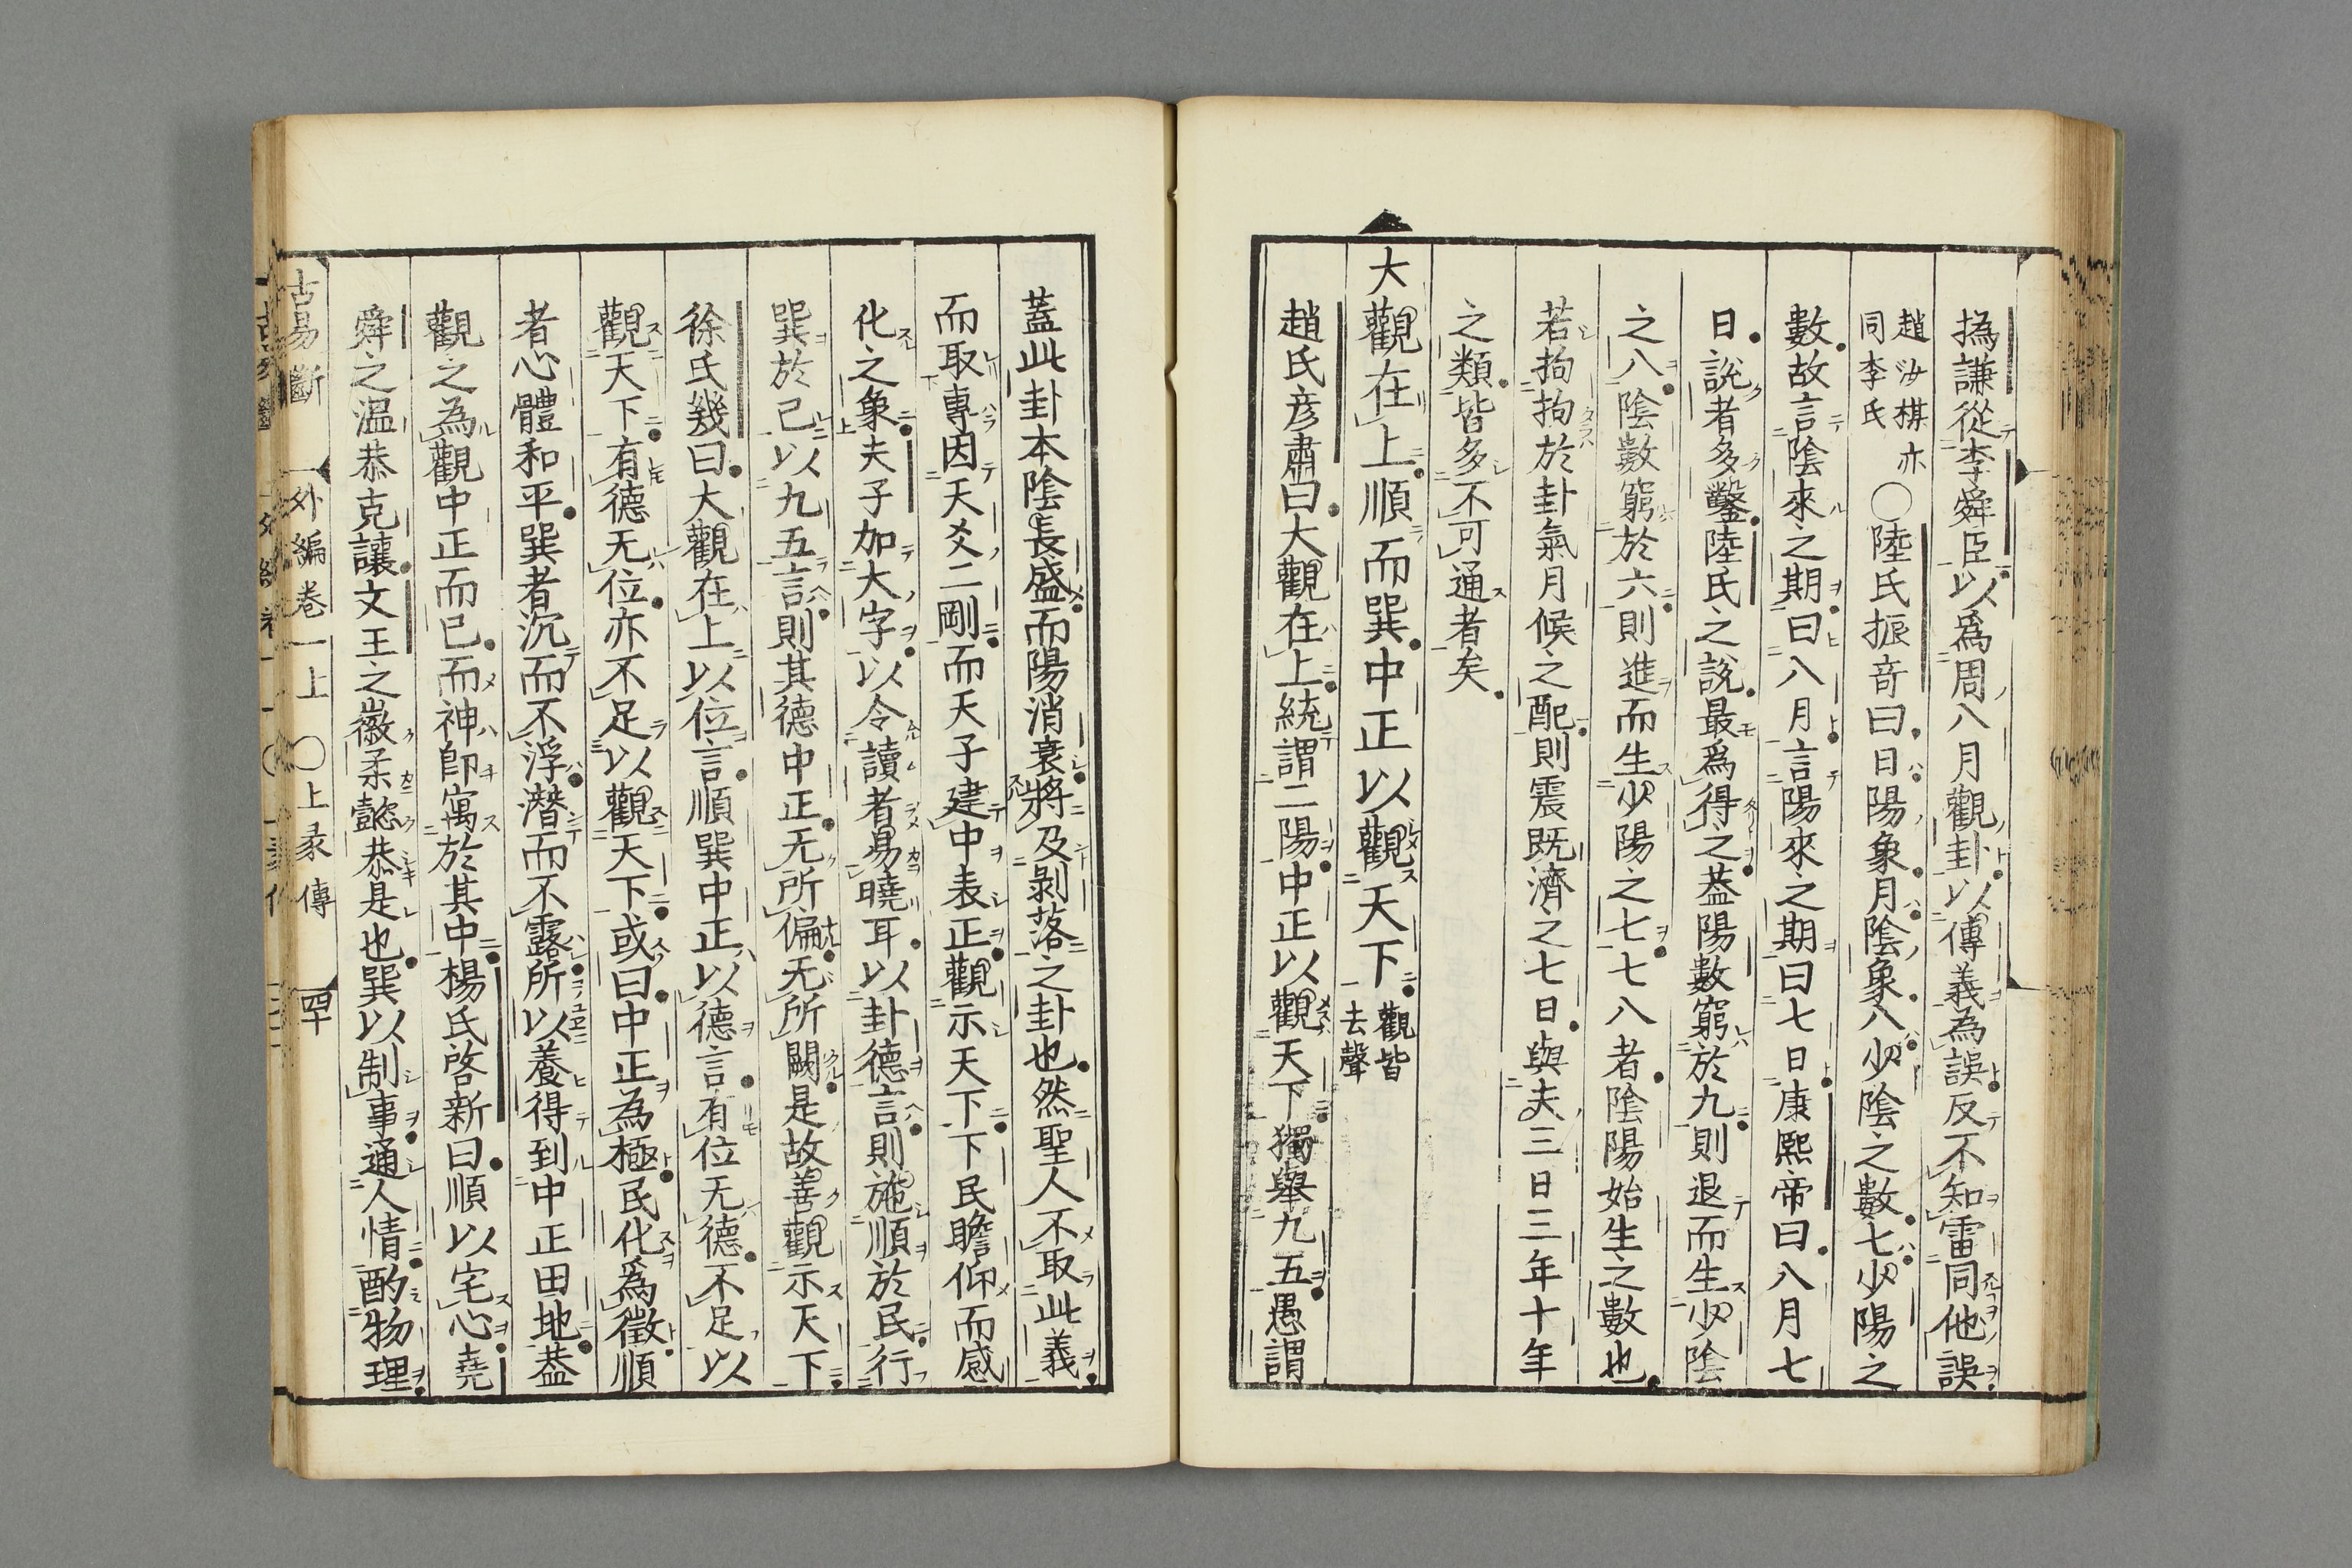 撝謙從李舜臣以爲周八月觀卦以傳義為誤反不知雷同他誤
趙汝楳亦
同李氏
〇陸氏振竒曰日陽象月陰象八少陰之數七少陽之
數故言陰來之期曰八月言陽來之期曰七日康熙帝曰八月七
日說者多鑿陸氏之說最爲得之葢陽數窮於九則退而生少陰
之八陰數窮於六則進而生少陽之七七八者陰陽始生之數也
若拘拘於卦氣月候之配則震既濟之七日與夫三日三年十年
之類皆多不可通者矣
大觀在上順而巽中正以觀天下
觀皆
去聲
趙氏彦肅曰大觀在上統謂二陽中正以觀天下獨舉九五愚謂
蓋此卦本陰長盛而陽消衰將及剝落之卦也然聖人不取此義
而取專因天爻二剛而天子建中表正觀示天下下民瞻仰而感
化之象夫子加大字以令讀者易曉耳以卦德言則施順於民行
巽於己以九五言則其德中正无所偏无所闕是故善觀示天下
徐氏幾曰大觀在上以位言順巽中正以德言有位无德不足以
觀天下有德无位亦不足以觀天下或曰中正為極民化爲徵順
者心體和平巽者沉而不浮潛而不露所以養得到中正田地葢
觀之為觀中正而已而神卽寓於其中楊氏啓新曰順以宅心堯
舜之溫恭克讓文王之徽柔懿恭是也巽以制事通人情酌物理
古易斷　外編卷一上　〇上彖傳　四十